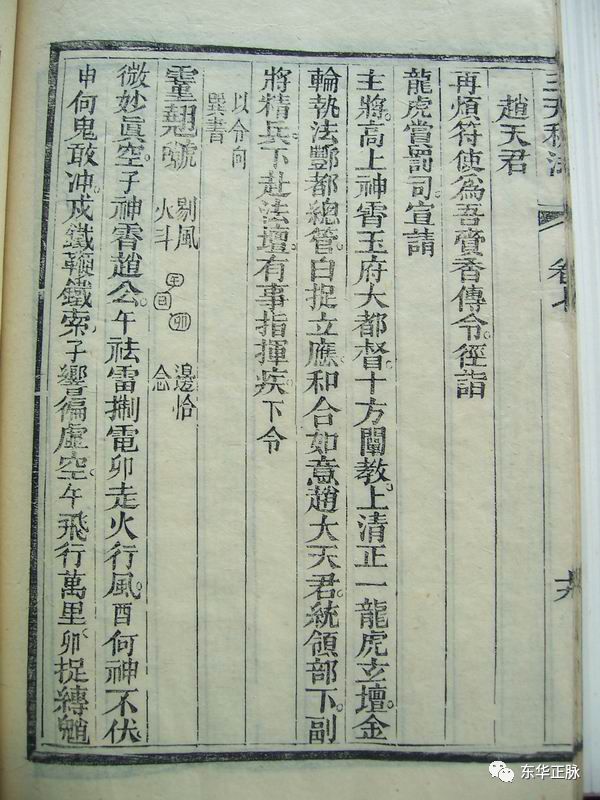 趙天君
再煩符使為吾賫香傳令徑詣
龍虎賞罰司宣請
主將。高上神霄玉府大都督十方闡教。上清正一龍虎玄壇。金
輪執法酆都總管。白捉立應。和合如意。趙大天君。統領部下。副
將精兵。下赴法壇。有事指揮。疾。下令
以令向
巽書
號
剔風
火斗
卯
邊恰
念
微妙眞空。子神霄趙公。午祛雷掣電卯走火行風。酉何神不伏
申何鬼敢冲。戌鐵鞭鐵索。子響徧虛空。午飛行萬里。卯捉縛魈
东华正脉